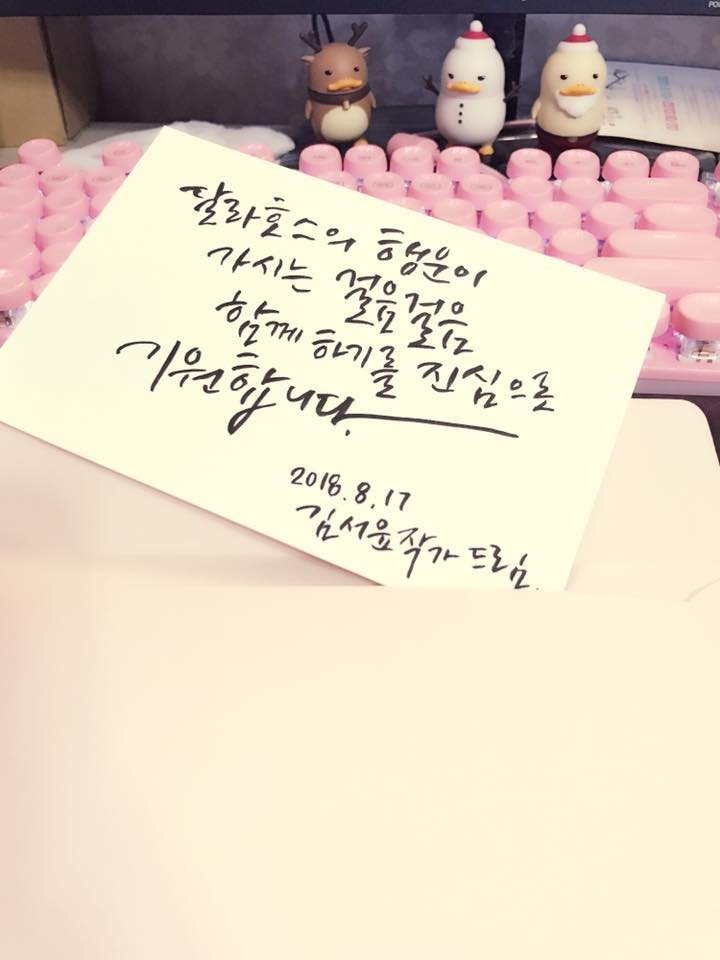 달라호스의 행운이
가시는 걸음걸음
함께 하기를 진심으로
기원합니다.
2018.8.17
김서윤작가 드림.